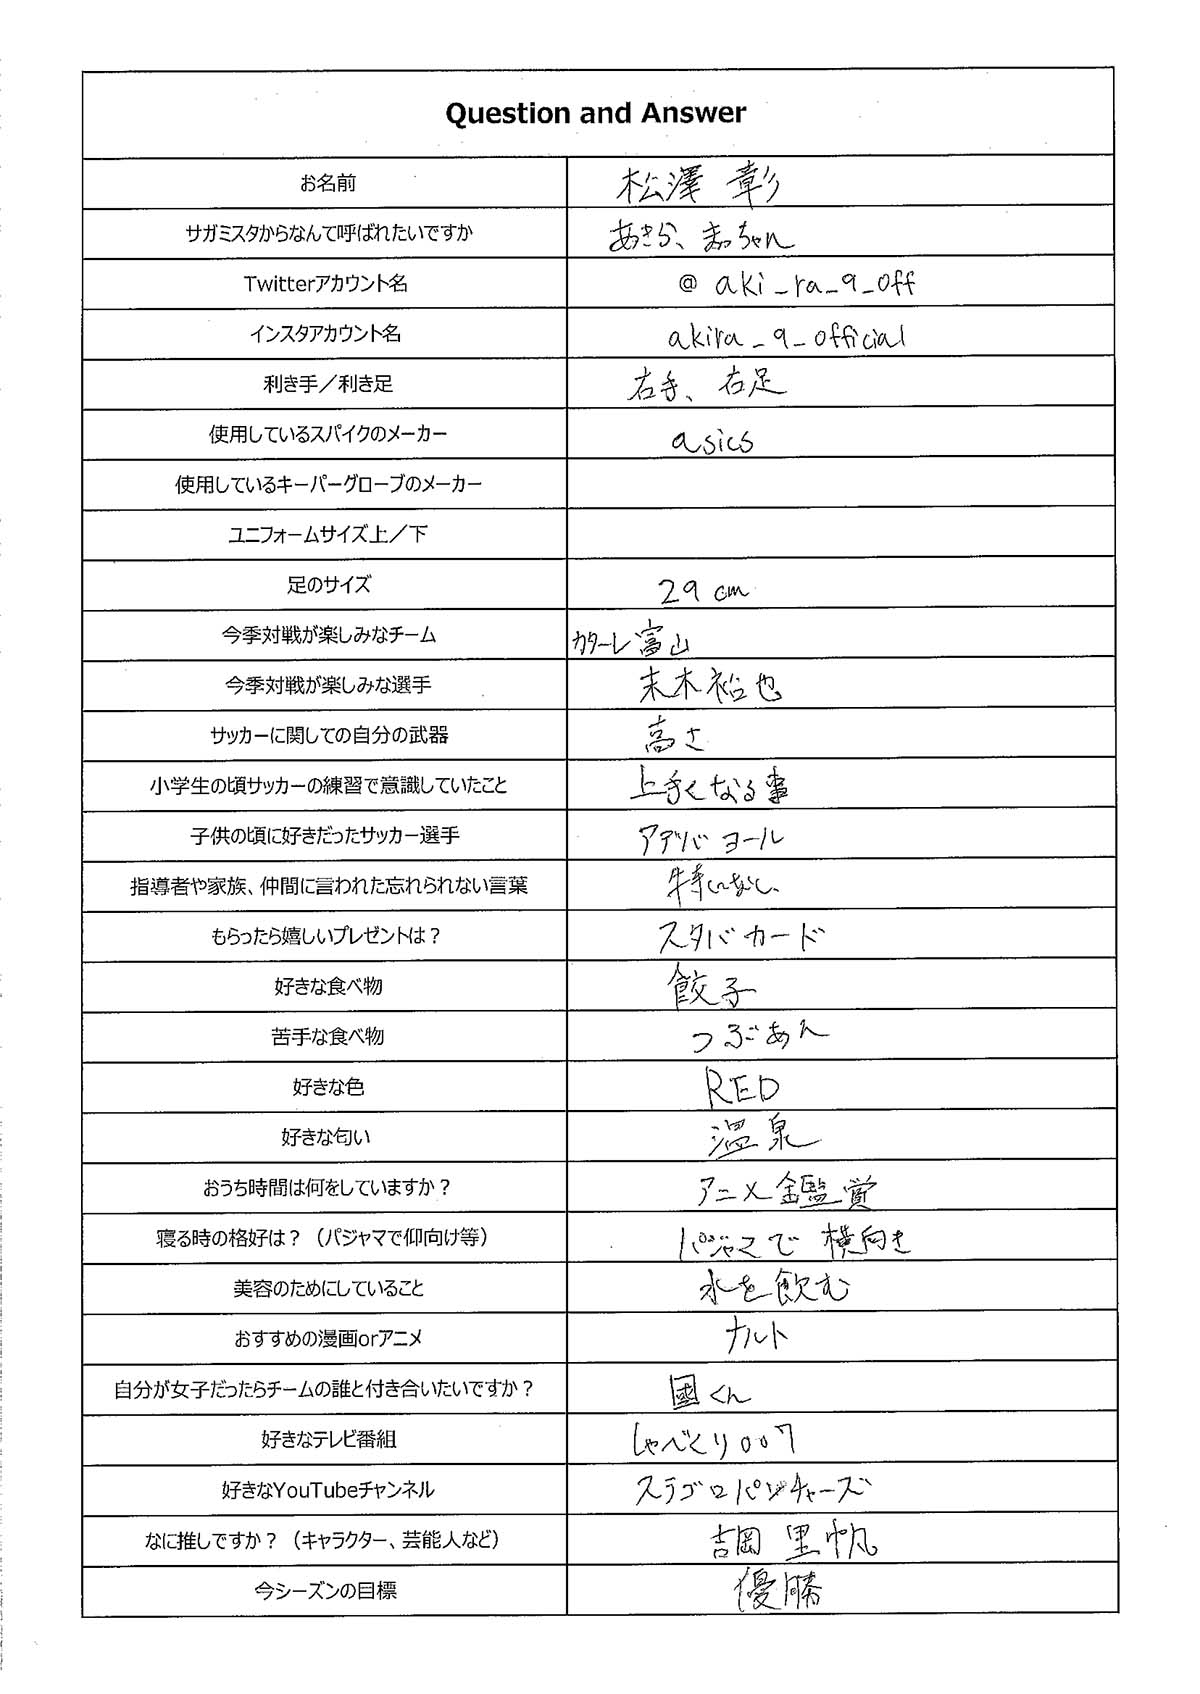 Question and Answer
お名前 松澤 彰
サガミスタからなんて呼ばれたいですか あきら、まっちゃん
Twitterアカウント名 @aki_ra_9_off
インスタアカウント名 akira_9_official
利き手／利き足 右手、右足
使用しているスパイクのメーカー asics
使用しているキーパーグローブのメーカー
ユニフォームサイズ上／下
足のサイズ 29cm
今季対戦が楽しみなチーム カターレ富山
今季対戦が楽しみな選手 末木裕也
サッカーに関しての自分の武器 高さ
小学生の頃サッカーの練習で意識していたこと 上手くなる事
子供の頃に好きだったサッカー選手 アデバヨール
指導者や家族、仲間に言われた忘れられない言葉 特になし、
もらったら嬉しいプレゼントは？ スタバカード
好きな食べ物 餃子
苦手な食べ物 つぶあん
好きな色 RED
好きな匂い 温泉
おうち時間は何をしていますか？ アニメ鑑賞
寝る時の格好は？（パジャマで仰向け等） パジャマで横向き
美容のためにしていること 水を飲む
おすすめの漫画orアニメ ナルト
自分が女子だったらチームの誰と付き合いたいですか？ 國くん
好きなテレビ番組 しゃべくり007
好きなYouTubeチャンネル スラゴロパンチャーズ
なに推しですか？（キャラクター、芸能人など） 吉岡 里帆
今シーズンの目標 優勝